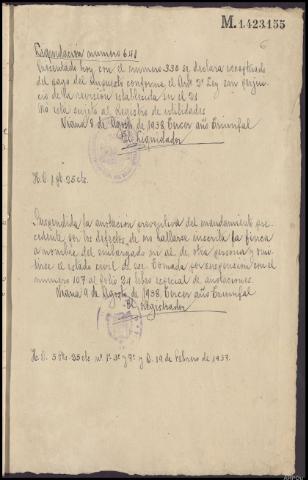 M.1.423.155
6
Liquidación numero 651
Presentado hoy con el numero 330 se declara exceptuado
del pago del impuesto conforme el Artº 3º Ley sin perjui-
cio de la revisión establecida en el 21
No está sujeto al Registro de entidades
Viana 8 de Agosto de 1938. Tercer año Triunfal
El Liquidador
H.O. 1 pt. 25 cts.
Suspendida la anotación preventiva del mandamiento pre-
cedente por los defectos de no hallarse inscrita la finca
a nombre del embargado ni de otra persona y omi-
tirse el estado civil de ese. Tomada por suspensión con el
numero 107 al folio 24 libro especial de anotaciones.
Viana 9 de Agosto de 1938. Tercer año Triunfal
El Registrador
H.O. 5 pts. 25 cts. nº 1º 3º y 7º y D. 19 de febrero de 1937.